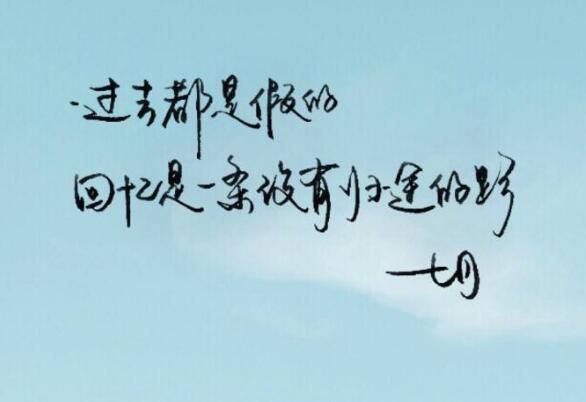 过去都是假的
回忆是一条没有归途的路
七月